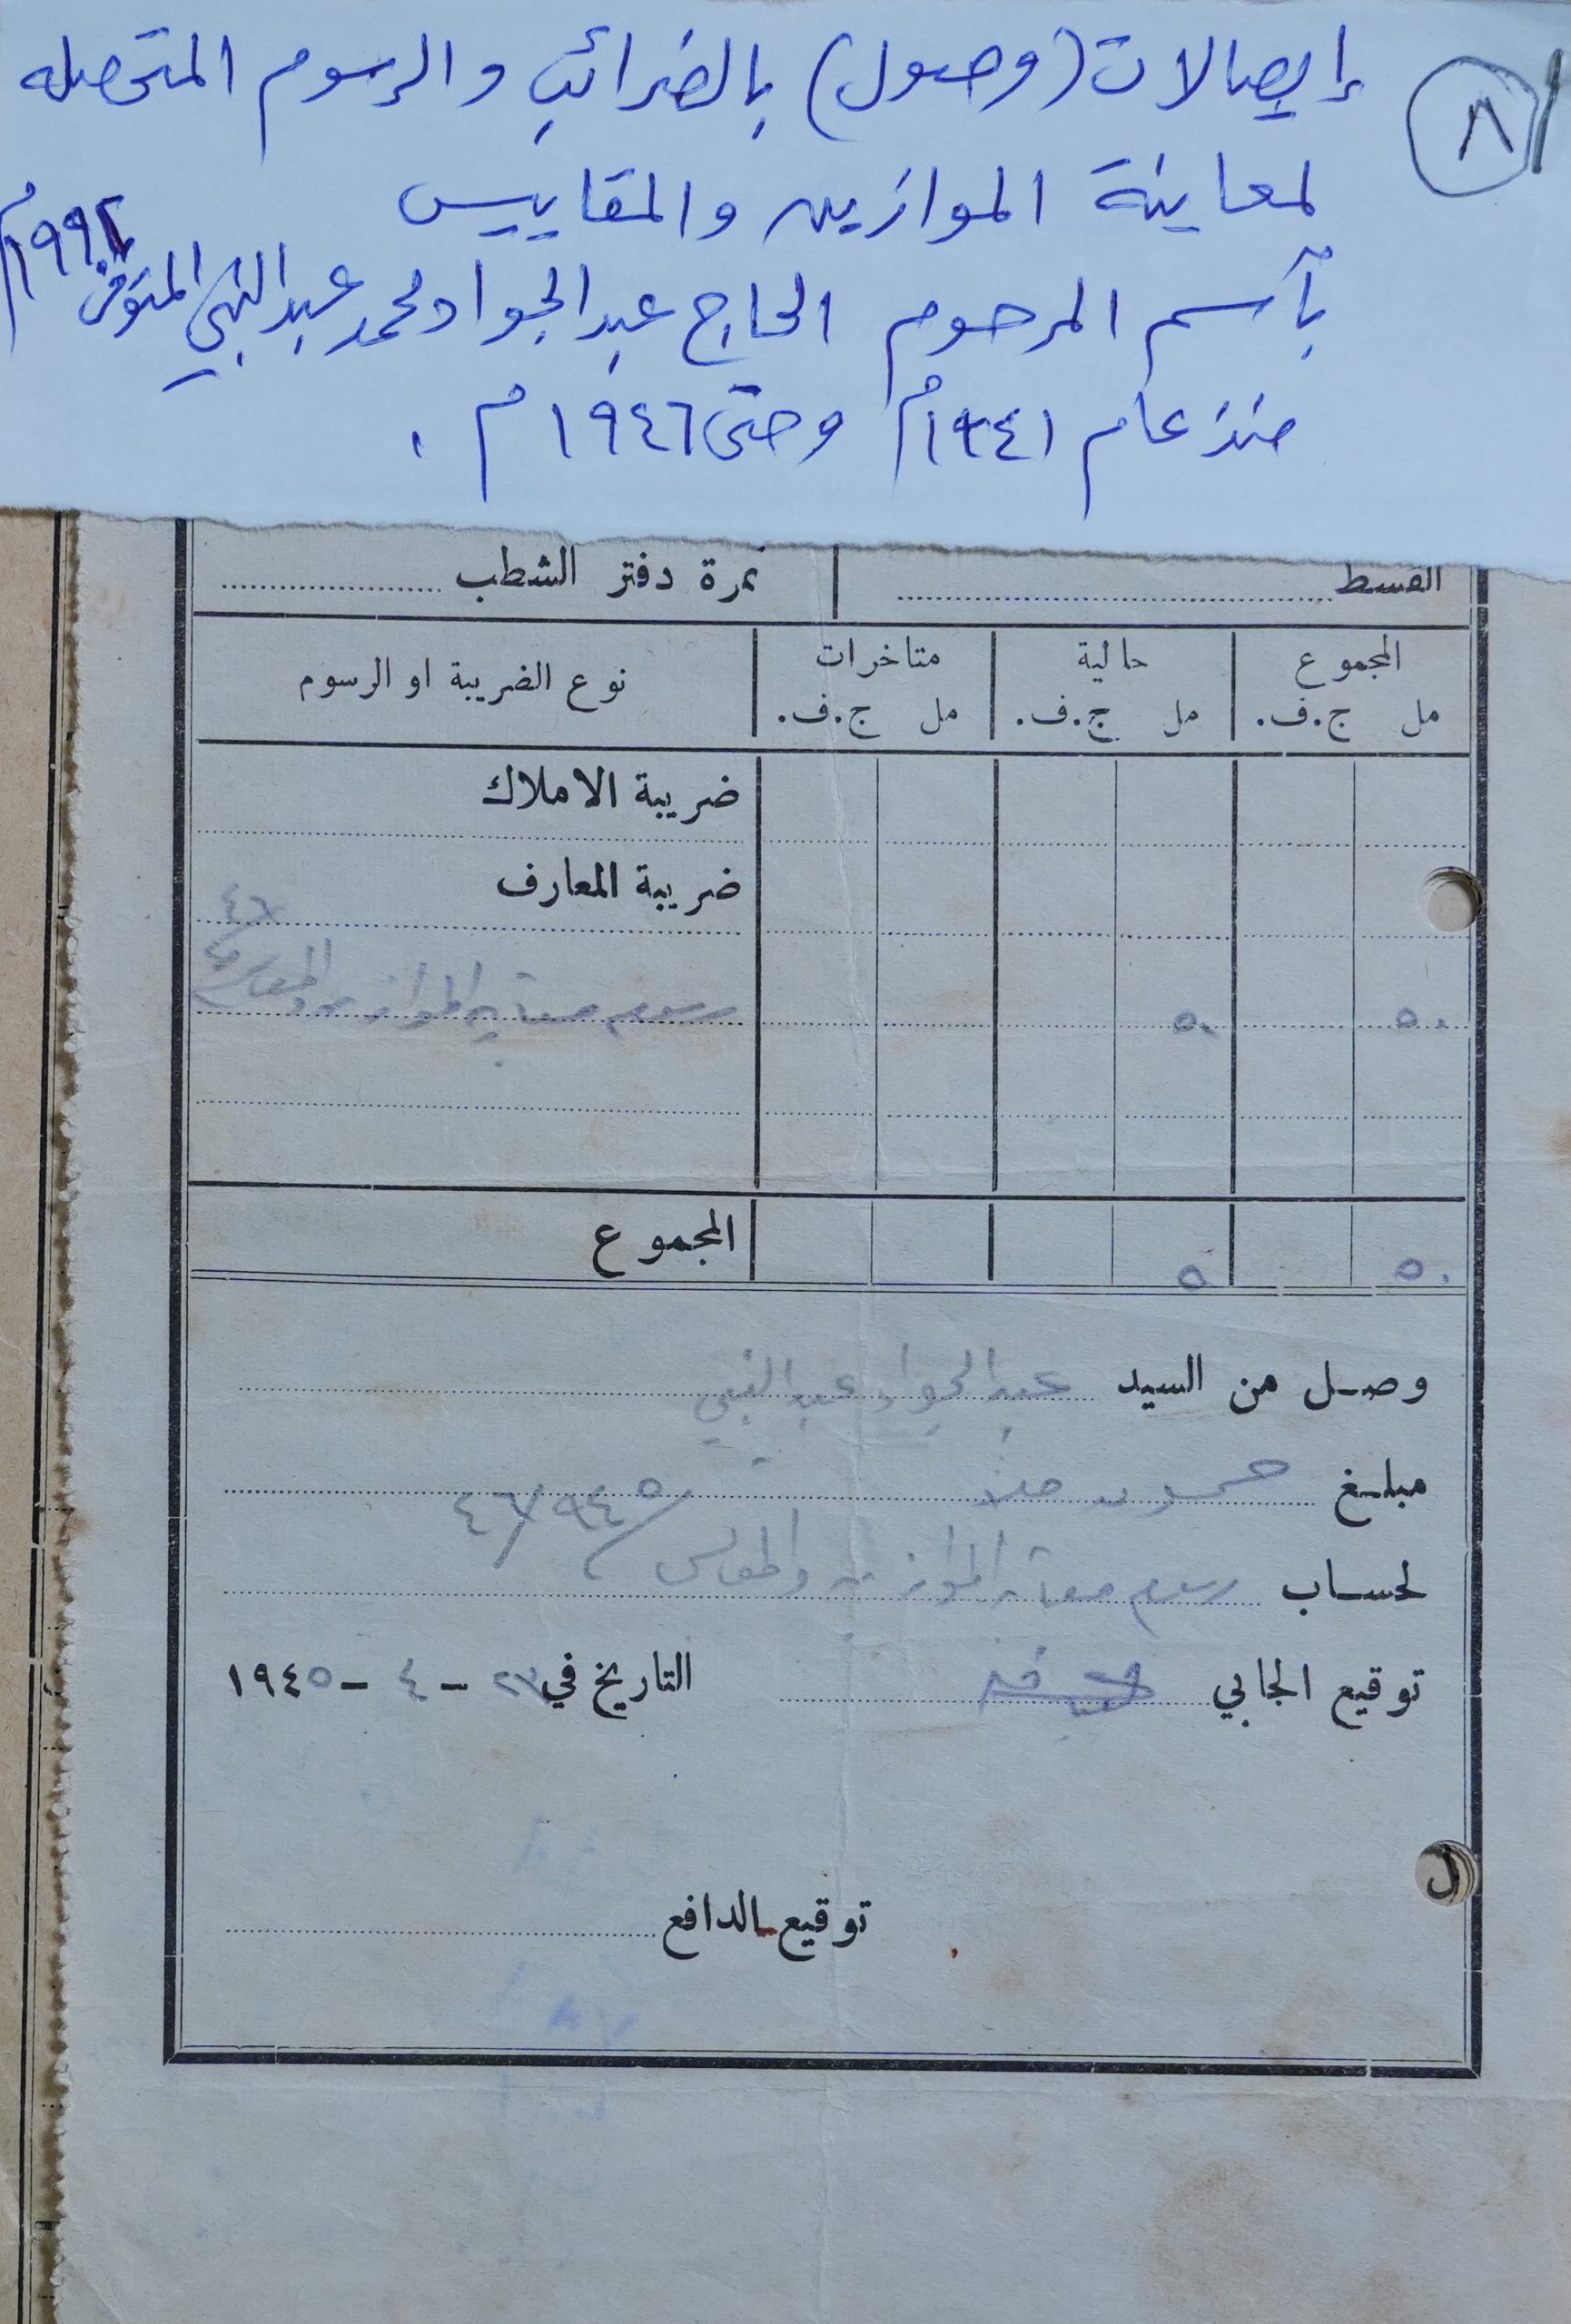 ٨
إيصالات (وصول) بالضرائب والرسوم المتحصله
لمعاينة الموازين والمقاييس
بأسم المرحوم الحاج عبد الجواد محمد عبد النبي المتوفى ١٩٩٢م
منذ عام ١٩٤١م وحتى ١٩٤٦م .
القسط نمرة دفتر الشطب
المجموع حالية متاخرات نوع الضريبة او الرسوم
مل ج.ف. مل ج.ف. مل ج.ف.
ضريبة الاملاك
ضريبة المعارف
٥٠ ٥٠ رسوم معاينة الموازين والمقاييس
٥٠ ٥ المجموع
وصل من السيد عبد الجواد عبد النبي
مبلغ خمسون
لحساب رسوم معاينة الموازين والمقاييس ٩٤٥/٤٦
توقيع الجابي التاريخ في ٢٣ - ٤ - ١٩٤٥
توقيع الدافع